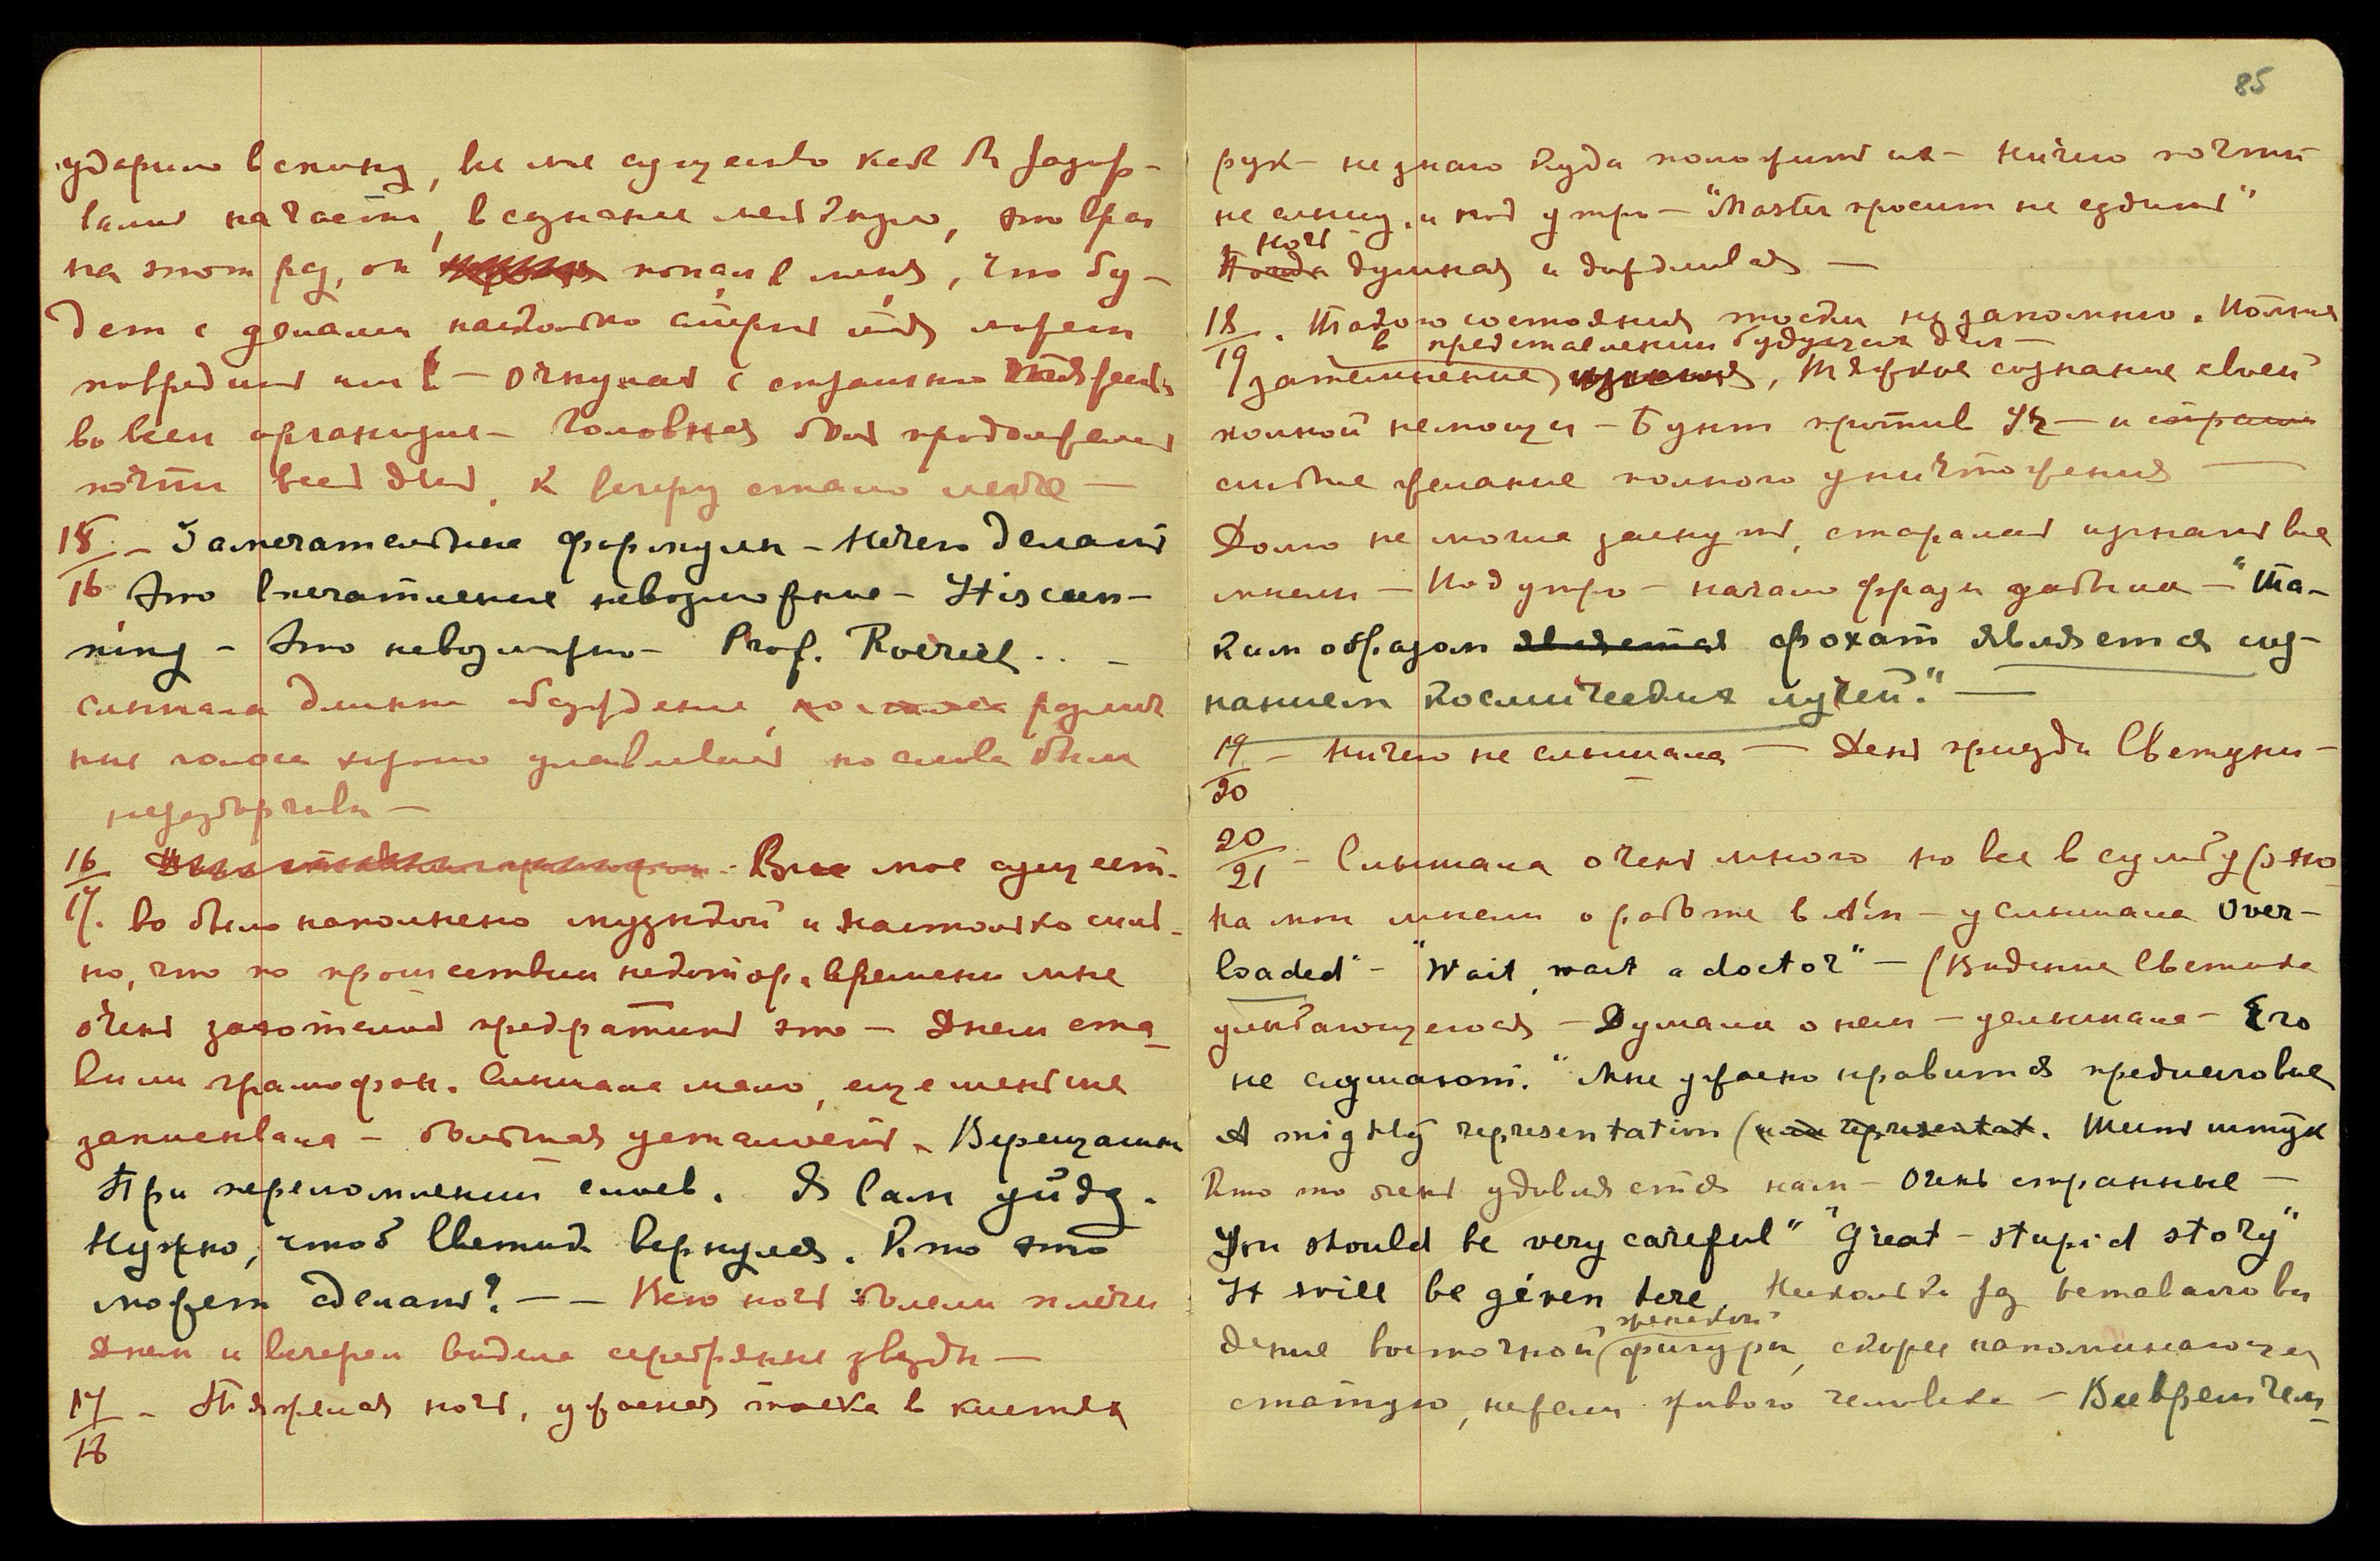 ударило в спину, все мое существо как бы разор-
валось на части, в сознании мелькнуло, это враг
на этот раз, он попал в меня, что бу-
дет с делами, насколько смерть моя может
повредить им! – Очнулась с страшной тяжестью
во всем организме – Головная боль продолжалась
почти весь день, к вечеру стало легче –
15/16 – Замечательные формулы – Нечего делать
Это впечатление невозможное – His cun-
ning – Это невозможно – Prof. Roerich . . –
Слышала длинное обсуждение, различ
ные голоса хорошо улавливались но слова были
неразборчивы –
16/17. Все мое сущест-
во было наполнено музыкой и настолько силь-
но, что по прошествии некотор. времени мне
очень захотелось прекратить это – Днем ста-
вили грамофон. Слышала мало, еще меньше
записывала – большая усталость. Верещагин
При переломлении слоев. Я сам уйду.
Нужно, чтоб Светик вернулся. Кто это
может сделать? – – Всю ночь болели плечи
Днем и вечером видела серебряные звезды –
17/18 – Тяжелая ночь, ужасная тоска в кистях
85
рук – не знаю куда положить их – Ничего почти
не слышу, и под утро – "Master просит не ездить"
ночь
Погода душная и дождливая –
18/19. Такого состояния тоски не запомню. Полное
в представлении будущих дел –
затемнение, тяжкое сознание своей
полной немощи – Бунт против Уч – и страш
сильное желание полного уничтожения –
Долго не могла заснуть, старалась изгнать все
мысли – Под утро – начало фразы забыла – "Та-
ким образом является фохат является соз-
нанием космических лучей." –
19/20 – Ничего не слышала – День приезда Светуни –
20/21 – Слышала очень много но все в сумбуре но
на мои мысли о работе в – услышала Over-
loaded" – "Wait, wait a doctor" – (Видение Светика
улыбающегося – Думала о нем – услышала – Его
не слушают." Мне ужасно нравится предисловие
A mighty representation ( representat. Шесть штук
Кто то очень удивляется нам – Очень странные –
You should be very careful" "Great – stupid story"
It will be given here, Несколько раз вставало ви
женской
дение восточной фигуры, скорее напоминающей
статую, нежели живого человека – Все время